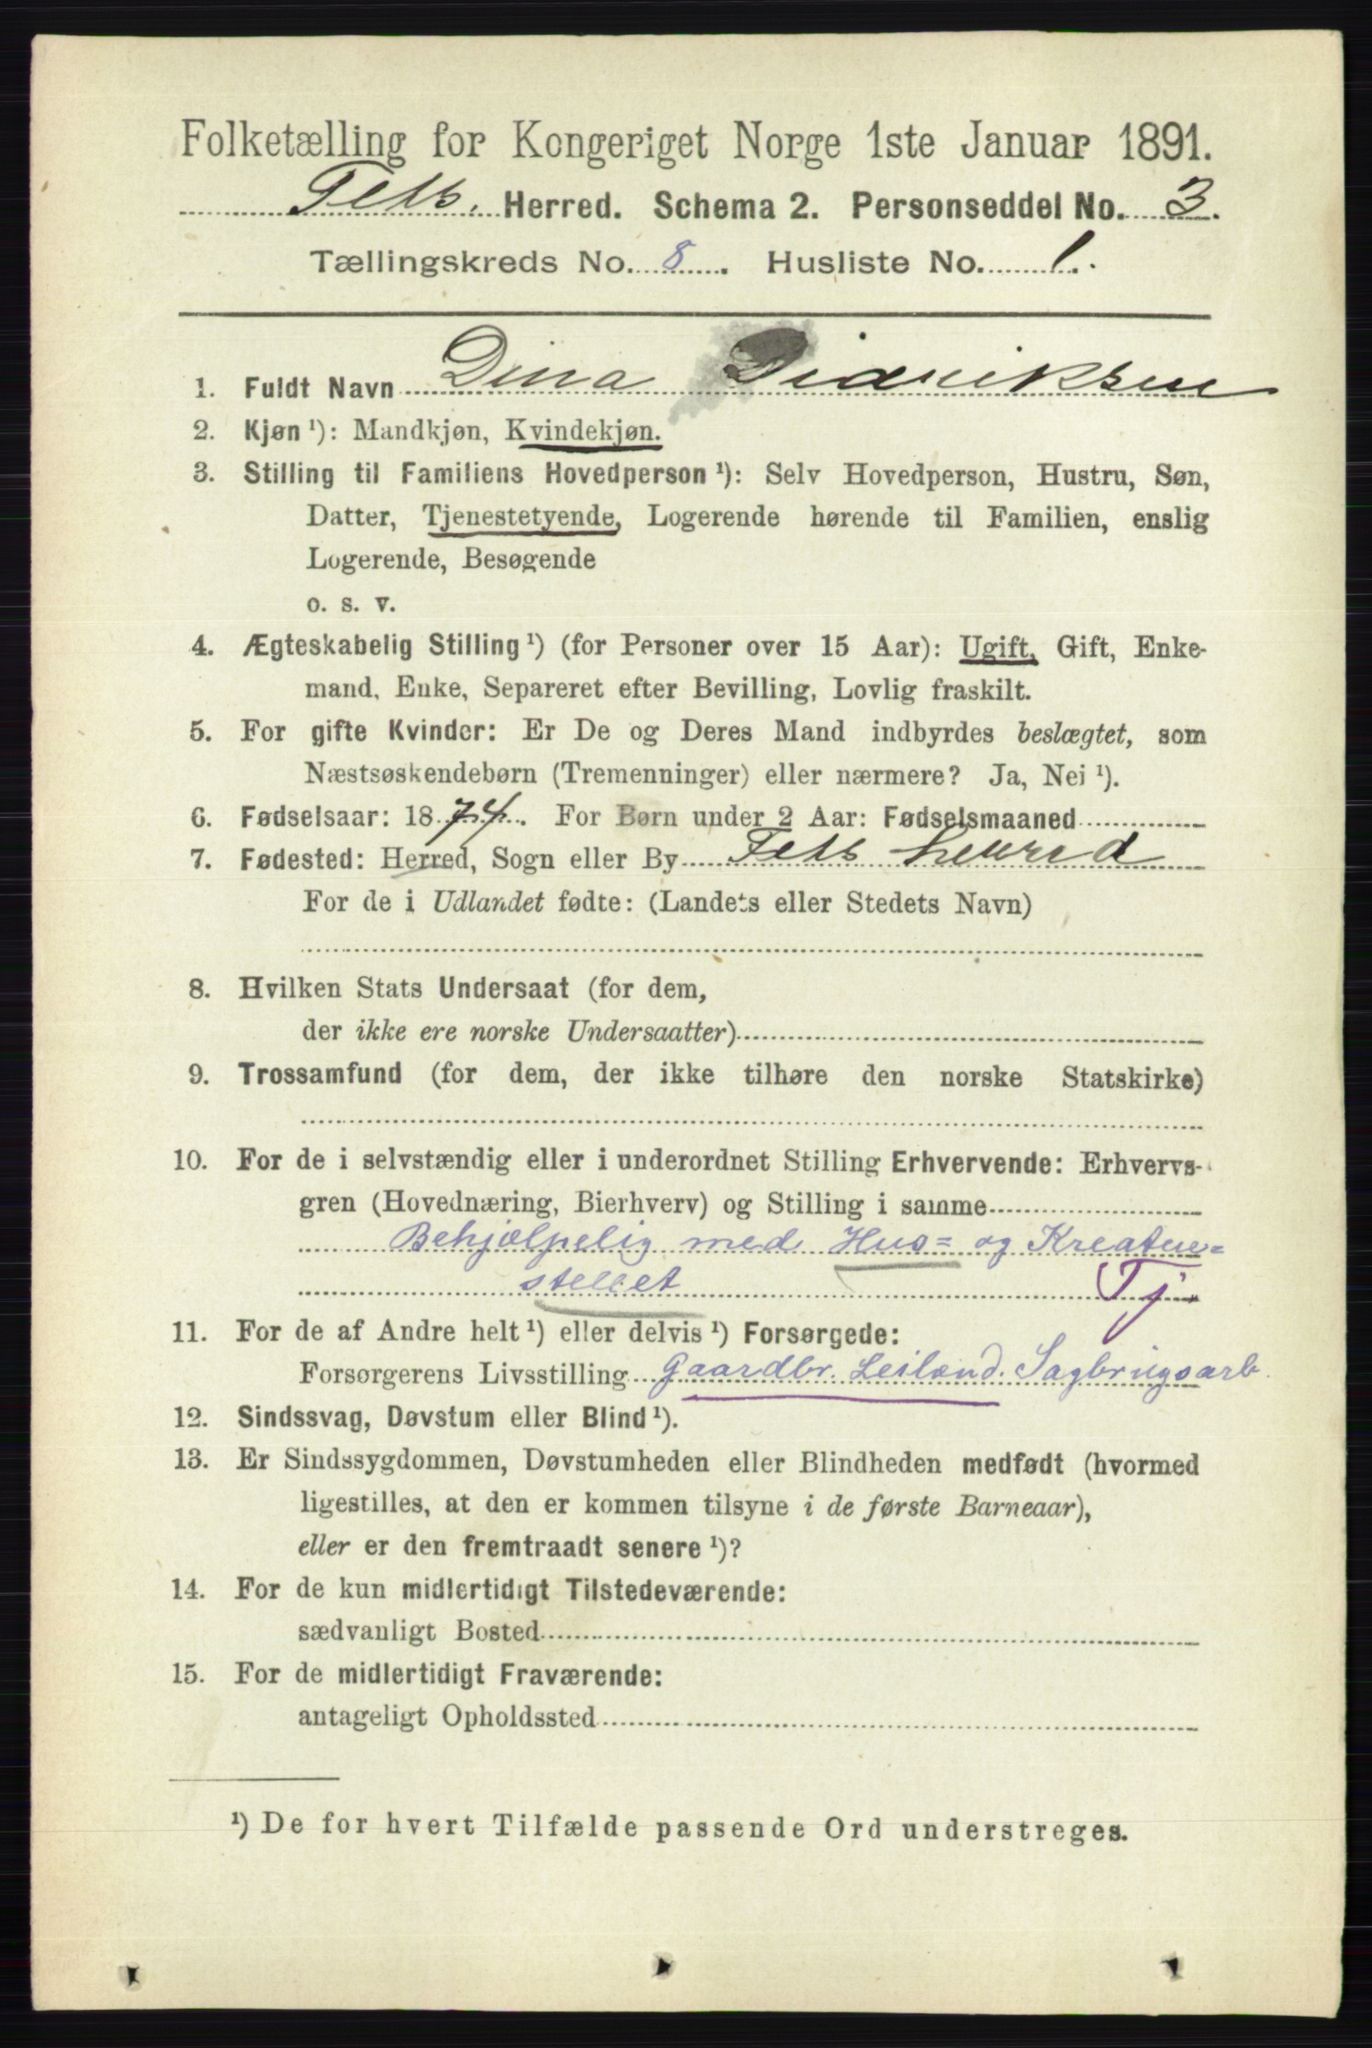 Folketælling for Kongeriget Norge 1ste Januar 1891.
Fets Herred. Schema 2. Personseddel No. 3.
Tællingskreds No. 8. Husliste No. 1.
1. Fuldt Navn Dina Didriksen
2. Kjøn ¹): Mandkjøn, Kvindekjøn.
3. Stilling til Familiens Hovedperson ¹): Selv Hovedperson, Hustru, Søn,
Datter, Tjenestetyende, Logerende hørende til Familien, enslig
Logerende, Besøgende
o. s. v.
4. Ægteskabelig Stilling ¹) (for Personer over 15 Aar): Ugift, Gift, Enke-
mand, Enke, Separeret efter Bevilling, Lovlig fraskilt.
5. For gifte Kvinder: Er De og Deres Mand indbyrdes beslægtet, som
Næstsøskendebørn (Tremenninger) eller nærmere? Ja, Nei ¹).
6. Fødselsaar: 1874. For Børn under 2 Aar: Fødselsmaaned
7. Fødested: Herred, Sogn eller By Fets herred
For de i Udlandet fødte: (Landets eller Stedets Navn)
8. Hvilken Stats Undersaat (for dem,
der ikke ere norske Undersaatter)
9. Trossamfund (for dem, der ikke tilhøre den norske Statskirke)
10. For de i selvstændig eller i underordnet Stilling Erhvervende: Erhvervs-
gren (Hovednæring, Bierhverv) og Stilling i samme
Behjælpelig med Hus= og Kreatur=
stellet Tj.
11. For de af Andre helt ¹) eller delvis ¹) Forsørgede:
Forsørgerens Livsstilling Gaardbr. Leilænd. Sagbrugsarb.
12. Sindssvag, Døvstum eller Blind ¹).
13. Er Sindssygdommen, Døvstumheden eller Blindheden medfødt (hvormed
ligestilles, at den er kommen tilsyne i de første Barneaar),
eller er den fremtraadt senere ¹)?
14. For de kun midlertidigt Tilstedeværende:
sædvanligt Bosted
15. For de midlertidigt Fraværende:
antageligt Opholdssted
¹) De for hvert Tilfælde passende Ord understreges.